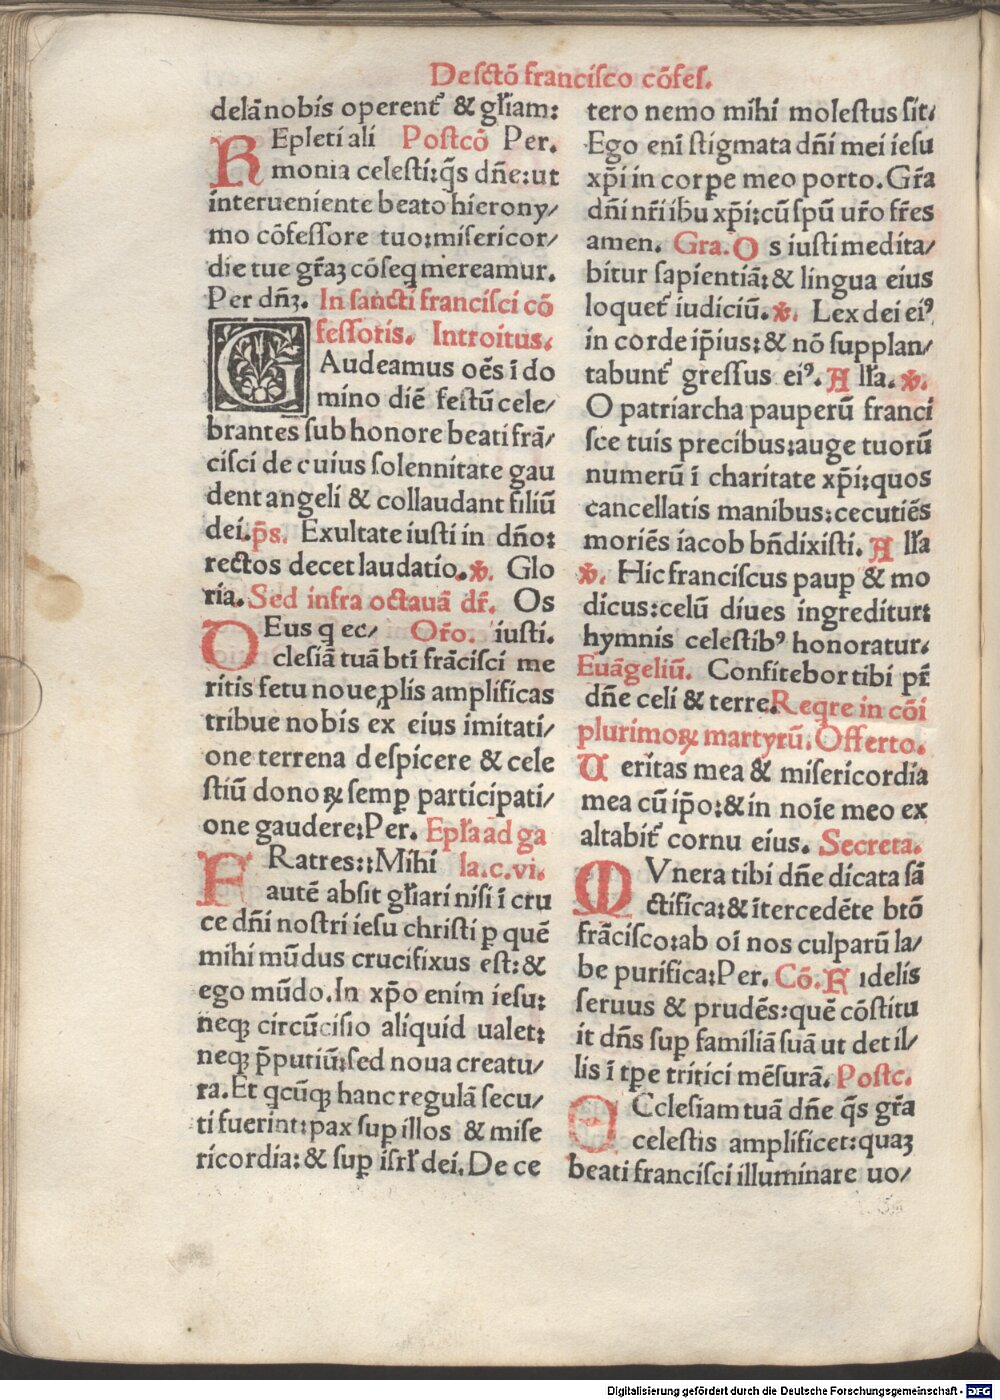 De sctō francisco cōfes.
delānobis operent᷑ & glīam:
REpleti ali Postcō Per.
monia celesti:q̄s dn̄e:ut
interueniente beato hierony/
mo cōfessore tuo:misericor/
die tue gr̄aꝫ cōseq mereamur.
Per dn̄ꝫ. In sancti francisci cō
fessoris. Introitus.
GAudeamus oēs ī do
mino diē festū cele/
brantes sub honore beati frā/
cisci de cuius solennitate gau
dent angeli & collaudant filiū
dei. p̄s. Exultate iusti in dn̄o:
rectos decet laudatio. ꝟ. Glo
ria. Sed infra octauā dr̄. Os
DEus q ec/ Or̄o. iusti.
clesiā tuā bt̄i frācisci me
ritis fetu noue ꝓlis amplificas
tribue nobis ex eius imitati/
one terrena despicere & cele
stiū donoꝝ semꝑ participati/
one gaudere:Per. Epl̄a ad ga
FRatres::Mihi la.c.vi.
autē absit gl̄iari nisi ī cru
ce dn̄i nostri iesu christi ꝑ quē
mihi mūdus crucifixus est:&
ego mūdo.In xp̄o enim iesu:
neqꝫ circūcisio aliquid ualet:
neqꝫ p̄putiū:sed noua creatu/
ra.Et qcūqꝫ hanc regulā secu/
ti fuerint:pax suꝑ illos & mise
ricordia:& suꝑ isrl̄ dei.De ce
tero nemo mihi molestus sit:
Ego enī stigmata dn̄i mei iesu
xp̄i in corpe meo porto.Gr̄a
dn̄i nr̄i ihu xp̄i:cū spū ur̄o fr̄es
amen. Gra. Os iusti medita/
bitur sapientiā:& lingua eius
loquet᷑ iudiciū. ꝟ. Lex dei eiꝰ
in corde ip̄ius:& nō supplan/
tabunt᷑ gressus eiꝰ. All̄a. ꝟ.
O patriarcha pauperū franci
sce tuis precibus:auge tuorū
numerū ī charitate xp̄i:quos
cancellatis manibus:cecutiēs
moriēs iacob bn̄dixisti. All̄a
ꝟ. Hic franciscus paup & mo
dicus:celū diues ingreditur:
hymnis celestibꝰ honoratur.
Euāgeliū. Confitebor tibi pr̄
dn̄e celi & terre. Reqre in cōi
plurimoꝝ martyrū. Offerto.
Ueritas mea & misericordia
mea cū ip̄o:& in noīe meo ex
altabit᷑ cornu eius. Secreta.
MVnera tibi dn̄e dicata sā
ctifica:& ītercedēte btō
frācisco:ab oī nos culparū la/
be purifica:Per. Cō. Fidelis
seruus & prudēs:quē cōstitu
it dn̄s suꝑ familiā suā ut det il/
lis ī tp̄e tritici mēsurā. Postc.
ECclesiam tuā dn̄e q̄s gr̄a
celestis amplificet:quaꝫ
beati francisci illuminare uo/
Digitalisierung gefördert durch die Deutsche Forschungsgemeinschaft - DFG